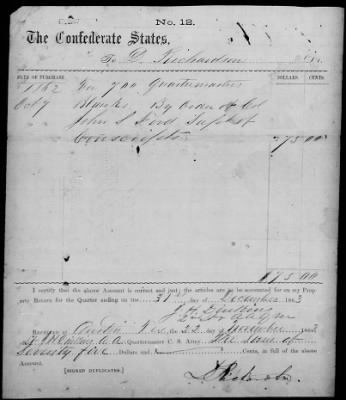 No. 12.
The Confederate States,
To D. Richardson Dr.
DATE OF PURCHASE. DOLLARS. CENTS.
1862 For 700 Quartermasters
Oct 7 Blanks By order of Col
John S Ford Supt of
Conscripts 75 00
$75.00
I certify that the above Account is correct and just; the articles are to be accounted for on my Property
Return for the Quarter ending on the 31st day of December 1863
RECEIVED at Austin Tex the 22 day of 1863
of A. A. Quartermaster C. S. Army, the sum of
Seventy five Dollars and Cents, in full of the above
Account.
[SIGNED DUPLICATES.] D Richardson